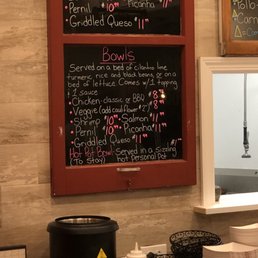 Pernil $10⁰⁰ Picanha $11⁰⁰
Griddled Queso $11⁰⁰
Bowls
Served on a bed of cilantro lime
turmeric rice and black beans or on a
bed of lettuce. Comes w/ 1 topping
+ 1 sauce
Chicken- classic or BBQ $8
Veggie (add cauliflower 2⁰⁰) $8
Shrimp $10⁰⁰ Salmon $11⁰⁰
Pernil $10⁰⁰ Picanha $11⁰⁰
Griddled Queso $11⁰⁰
Hot Pot Bowl: Served in a Sizzling
(To Stay) hot Personal Pot
Tollo